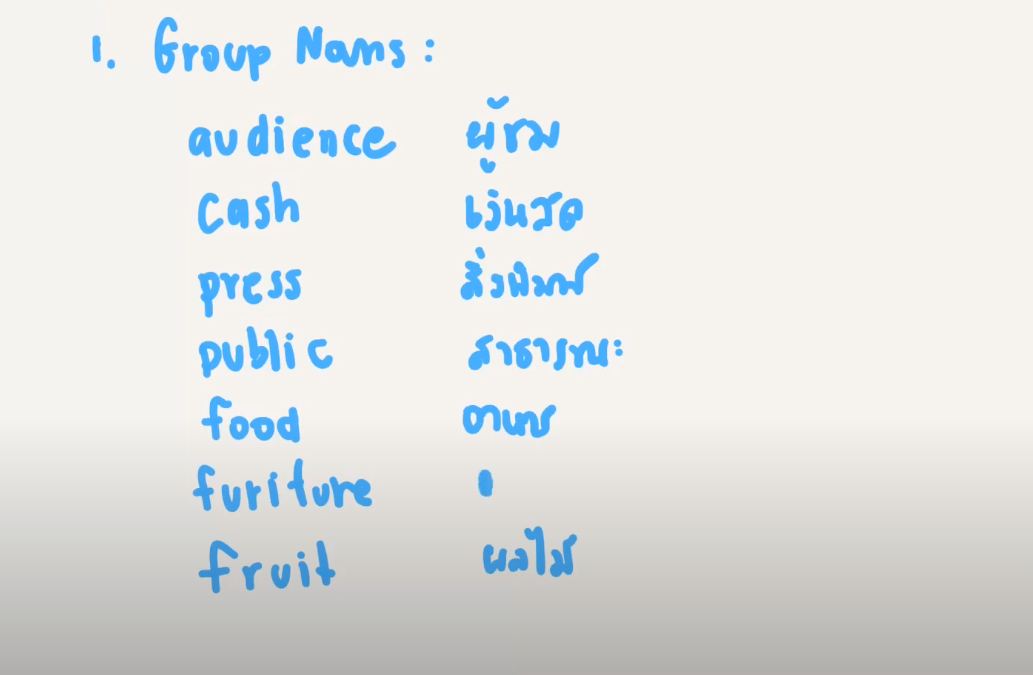 1. Group Nams:
audience ผู้ชม
cash เงินสด
press สิ่งพิมพ์
public สาธารณะ
food อาหาร
furiture
fruit ผลไม้